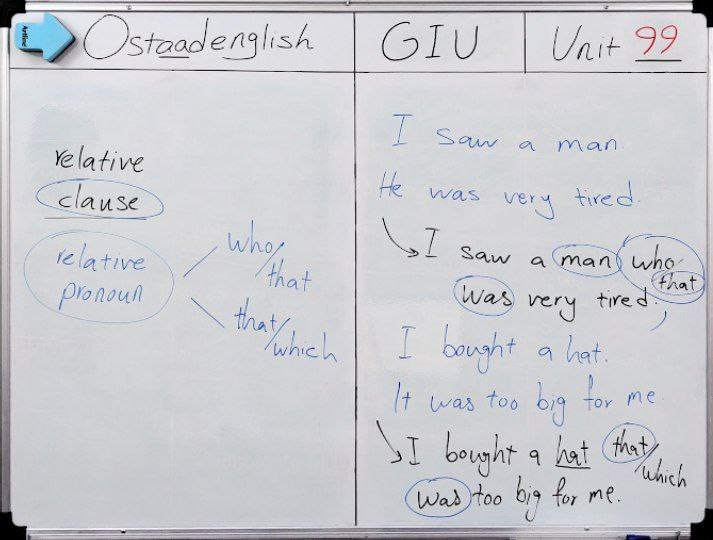 Artline
Ostaadenglish
GIU
Unit 99
relative
clause
relative
pronoun
who/
that
that/
which
I saw a man.
He was very tired.
I saw a man who/
that
was very tired.
I bought a hat.
It was too big for me
I bought a hat that/
which
was too big for me.